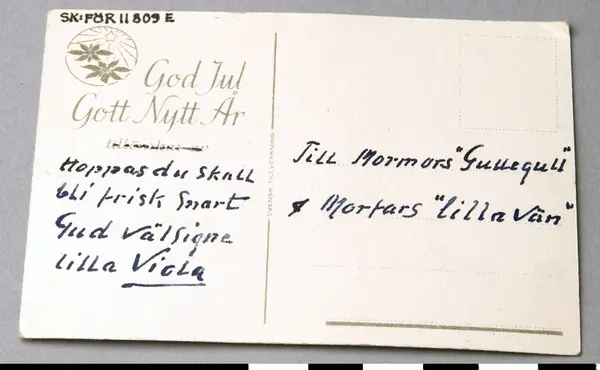 SK:FÖR 11809 E
God Jul
Gott Nytt År
tillönskas av
Hoppas du skall
bli frisk snart
Gud välsigne
lilla Viola
SVENSK TILLVERKNING
Till Mormors "Gullegull"
& Morfars "lilla vän"